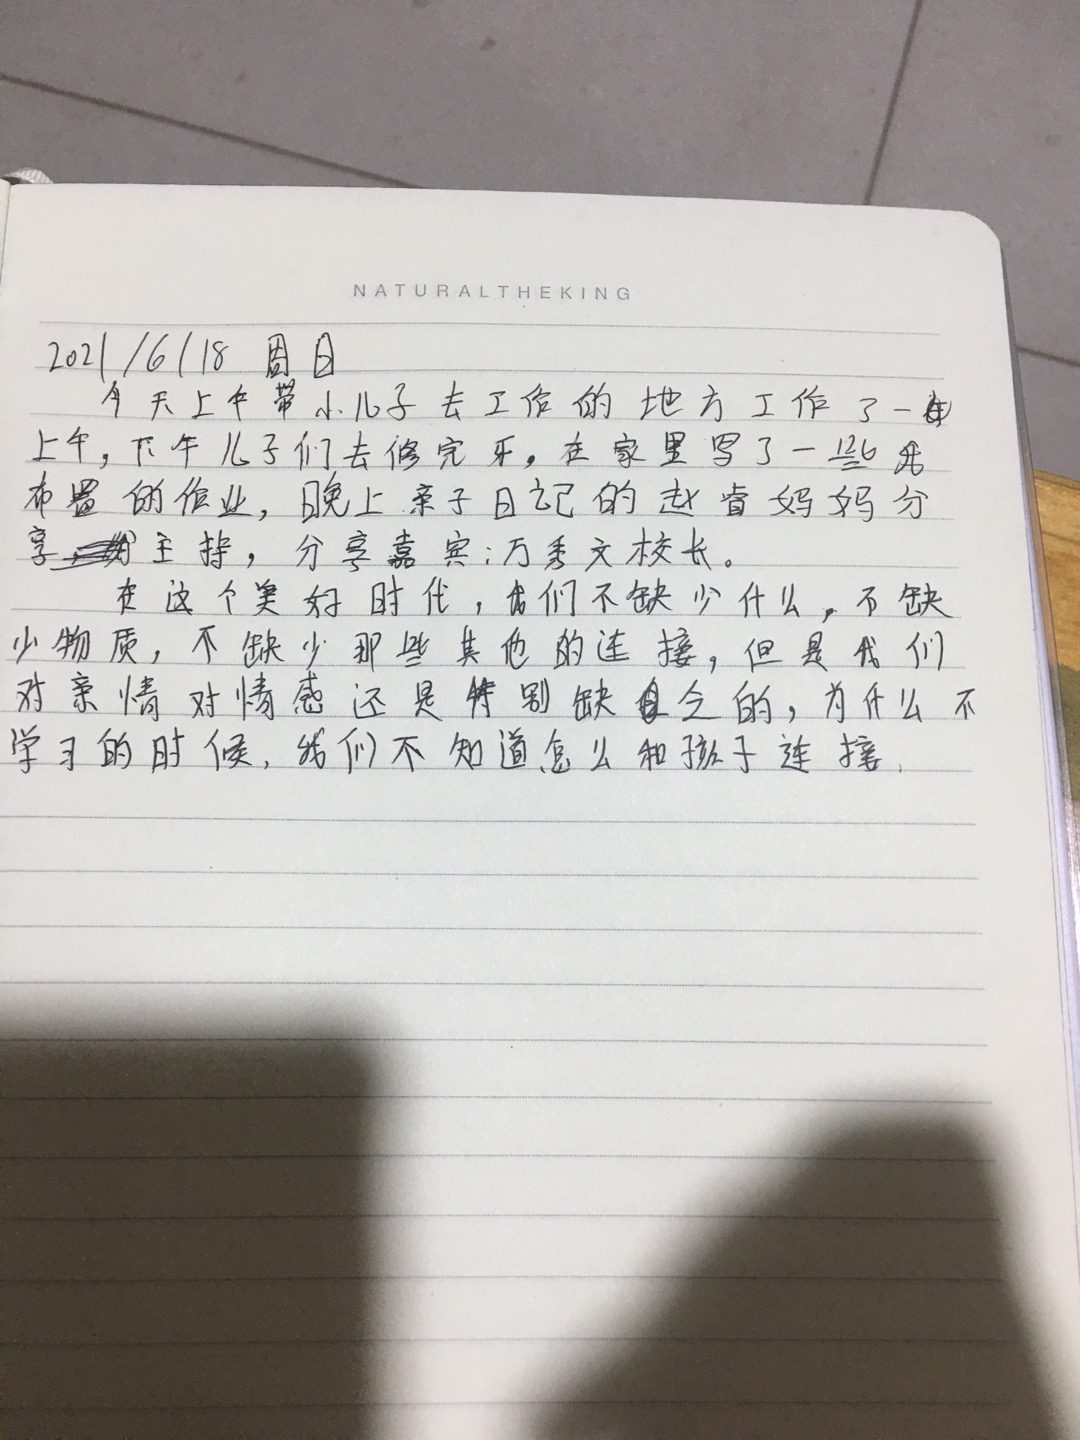 NATURALTHEKING
2021/6/18 周日
今天上午带小儿子去工作的地方工作了一
上午，下午儿子们去修完牙，在家里写了一些我
布置的作业，晚上亲子日记的赵睿妈妈分
享 主持，分享嘉宾：万秀文校长。
在这个美好时代，我们不缺少什么，不缺
少物质，不缺少那些其他的连接，但是我们
对亲情对情感还是特别缺乏的，为什么不
学习的时候，我们不知道怎么和孩子连接．